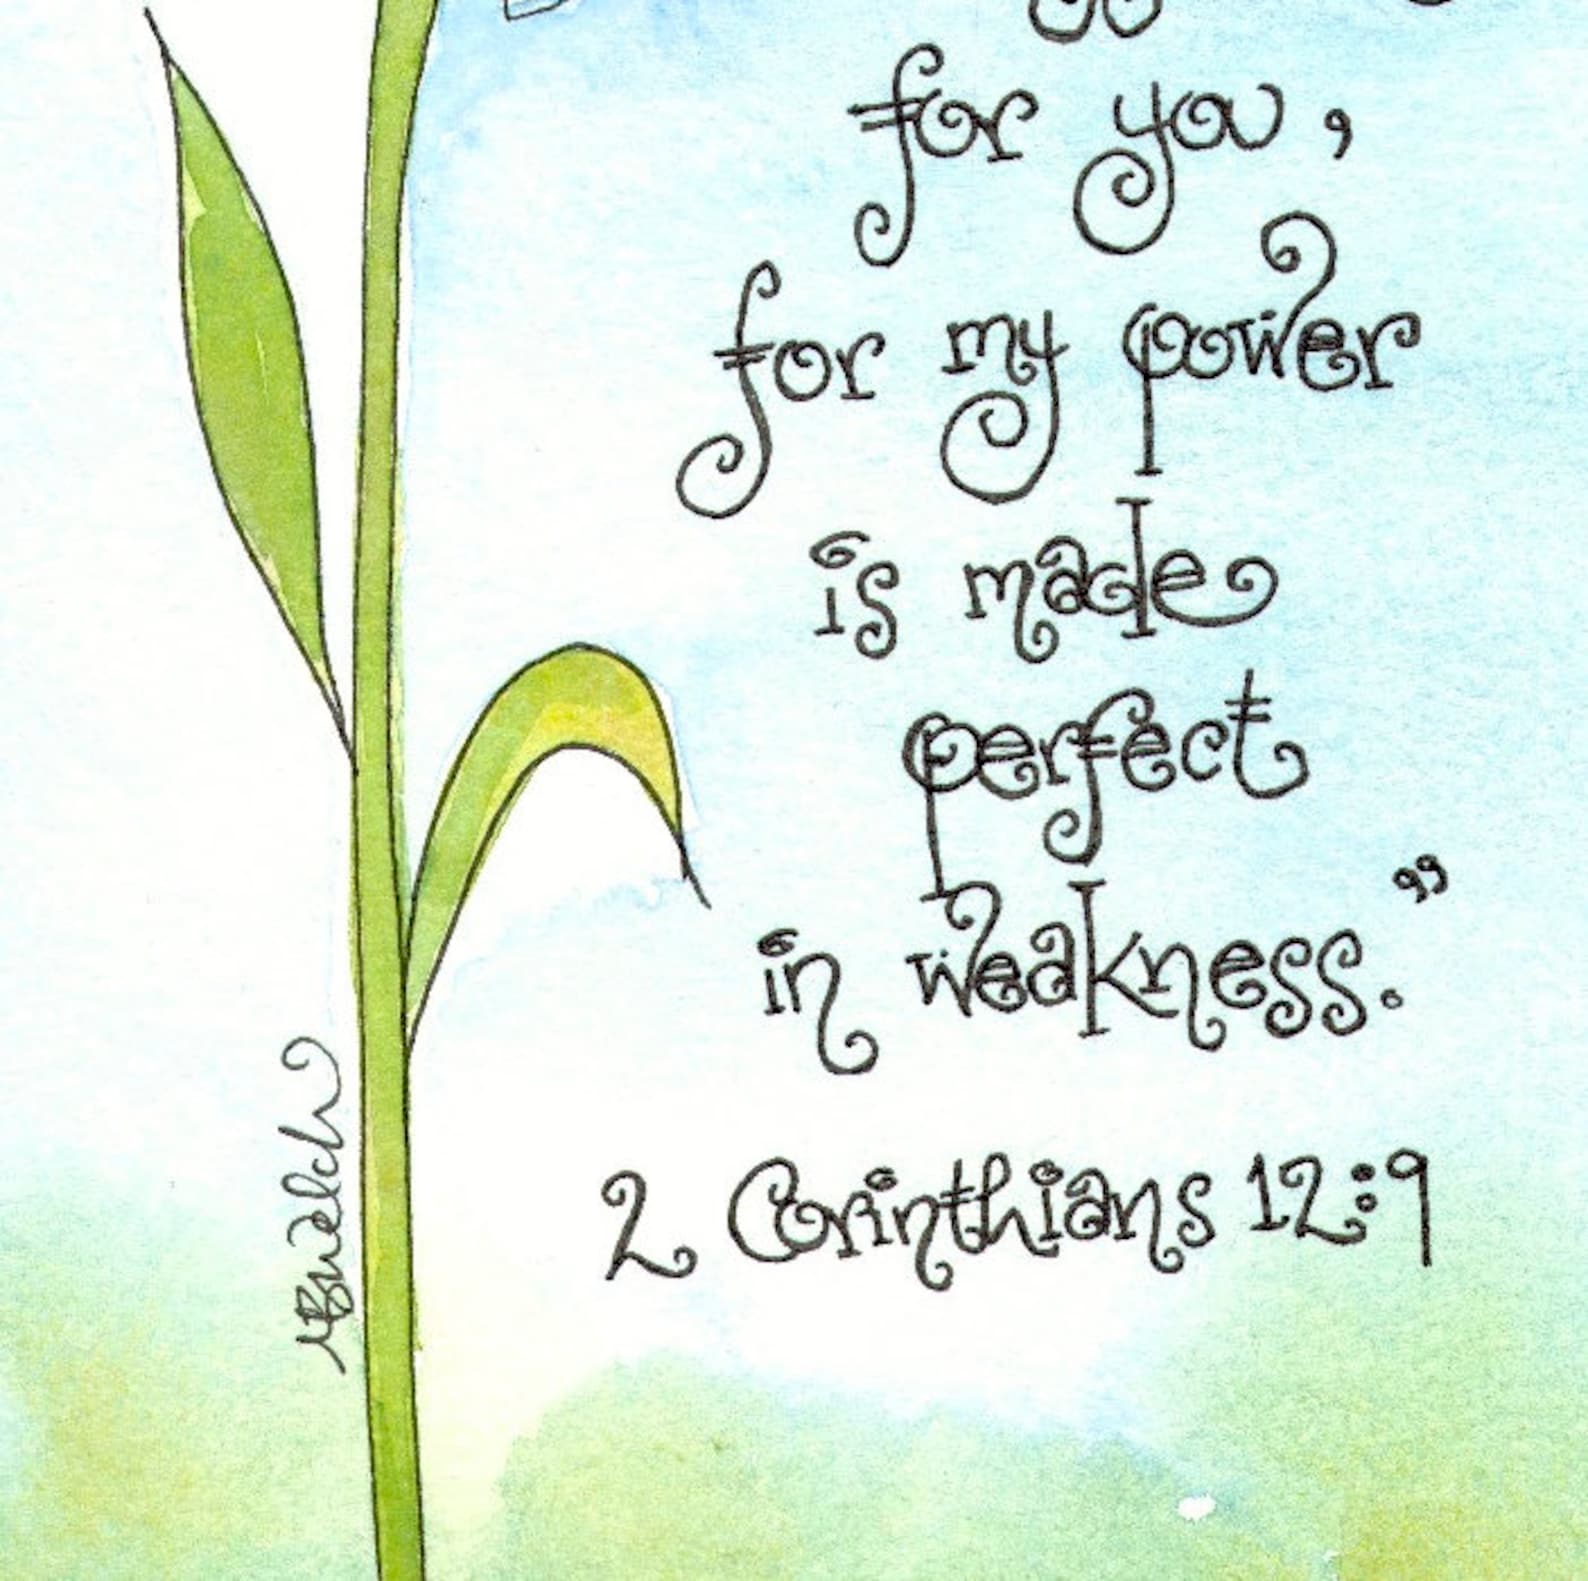 for you,
for my power
is made
perfect
in weakness.”
2 Corinthians 12:9